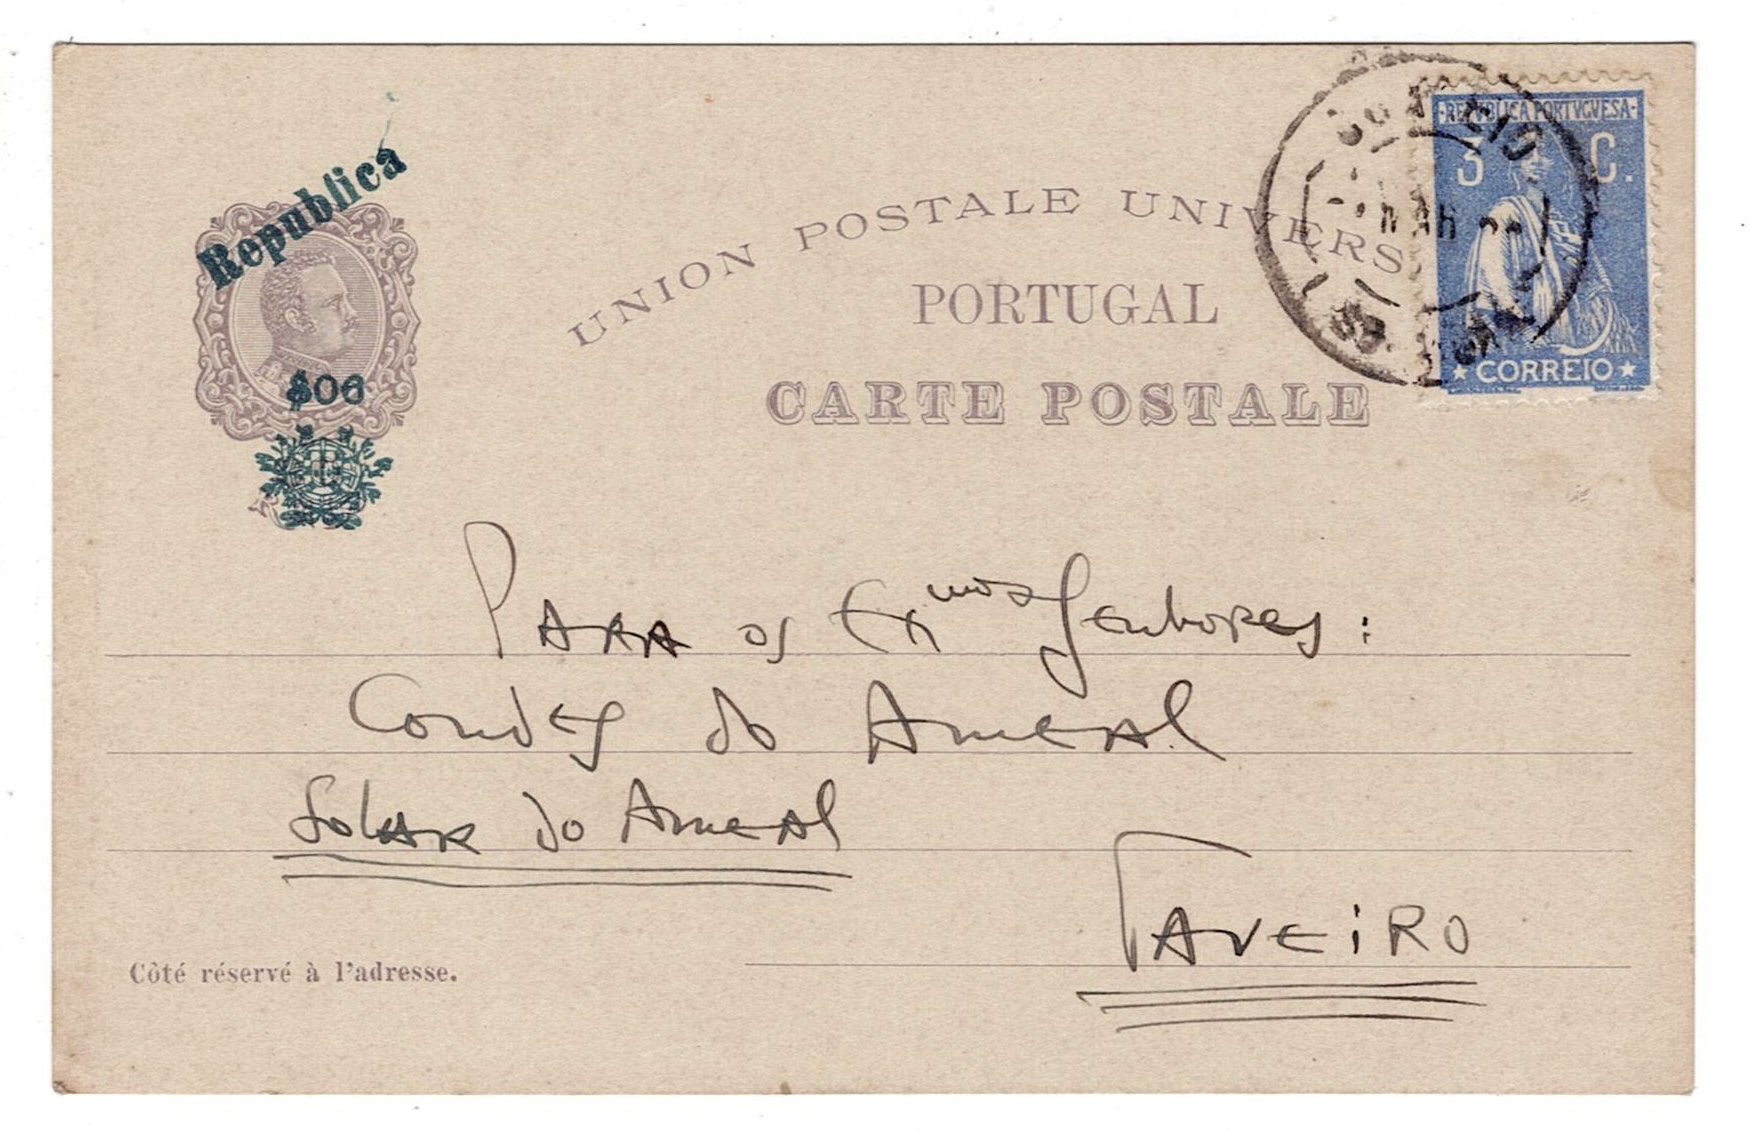 Republica
$06
UNION POSTALE UNIVERS
PORTUGAL
CARTE POSTALE
REPUBLICA PORTVGVESA
3 C.
CORREIO
Para os Exmos Senhores:
Condes do Ameal
Solar do Ameal
Taveiro
Côté réservé à l'adresse.